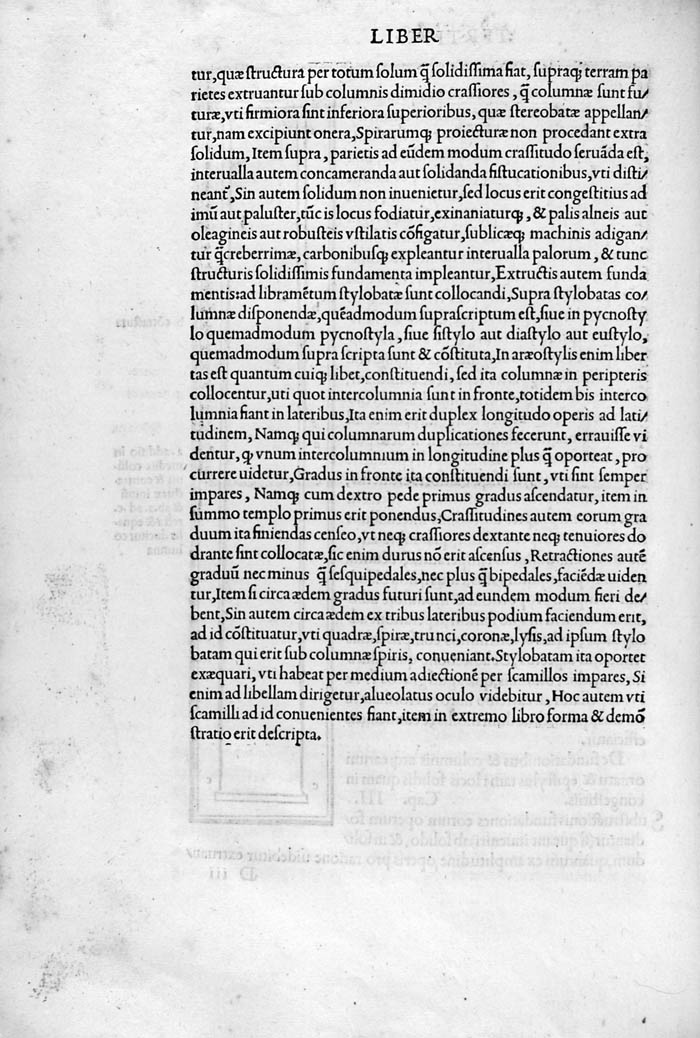 LIBER
tur,quæ ſtructura per totum ſolum q̃ ſolidiſſima fiat, ſupraq; terram pa
rietes extruantur ſub columnis dimidio craſſiores, q̃ columnæ ſunt fu/
turæ,vti firmiora ſint inferiora ſuperioribus, quæ ſtereobatæ appellan/
tur,nam excipiunt onera,Spirarumq; proiecturæ non procedant extra
ſolidum, Item ſupra, parietis ad eũdem modum craſſitudo ſeruãda eſt,
interualla autem concameranda aut ſolidanda fiſtucationibus,vti diſti/
neant᷑,Sin autem ſolidum non inuenietur,ſed locus erit congeſtitius ad
imũ aut paluſter,tũc is locus fodiatur,exinaniaturq;, & palis alneis aut
oleagineis aut robuſteis vſtilatis cõfigatur,ſublicæq; machinis adigan/
tur q̃creberrimæ, carbonibuſq; expleantur interualla palorum, & tunc
ſtructuris ſolidiſſimis fundamenta impleantur,Extructis autem funda
mentis:ad libramẽtum ſtylobatæ ſunt collocandi,Supra ſtylobatas co/
lumnæ diſponendæ, quẽadmodum ſupraſcriptum eſt,ſiue in pycnoſty
lo quemadmodum pycnoſtyla, ſiue ſiſtylo aut diaſtylo aut euſtylo,
quemadmodum ſupra ſcripta ſunt & cõſtituta,In aræoſtylis enim liber
tas eſt quantum cuiq; libet,conſtituendi, ſed ita columnæ in peripteris
collocentur,uti quot intercolumnia ſunt in fronte,totidem bis interco
lumnia fiant in lateribus,Ita enim erit duplex longitudo operis ad lati/
tudinem, Namq; qui columnarum duplicationes fecerunt, errauiſſe vi
dentur, ꝙ vnum intercolumnium in longitudine plus q̃ oporteat, pro
currere uidetur,Gradus in fronte ita conſtituendi ſunt, vti ſint ſemper
impares, Namq; cum dextro pede primus gradus aſcendatur, item in
ſummo templo primus erit ponendus,Craſſitudines autem eorum gra
duum ita finiendas cenſeo,vt neq; craſſiores dextante neq; tenuiores do
drante ſint collocatæ,ſic enim durus nõ erit aſcenſus, Retractiones autẽ
graduũ nec minus q̃ ſeſquipedales,nec plus q̃ bipedales,faciẽdæ uiden
tur,Item ſi circa ædem gradus futuri ſunt,ad eundem modum fieri de/
bent,Sin autem circa ædem ex tribus lateribus podium faciendum erit,
ad id cõſtituatur,vti quadræ,ſpiræ,trunci,coronæ,lyſis,ad ipſum ſtylo
batam qui erit ſub columnæ ſpiris, conueniant.Stylobatam ita oportet
exæquari, vti habeat per medium adiectionẽ per ſcamillos impares, Si
enim ad libellam dirigetur,alueolatus oculo videbitur, Hoc autem vti
ſcamilli ad id conuenientes fiant,item in extremo libro forma & demõ
ſtratio erit deſcripta.